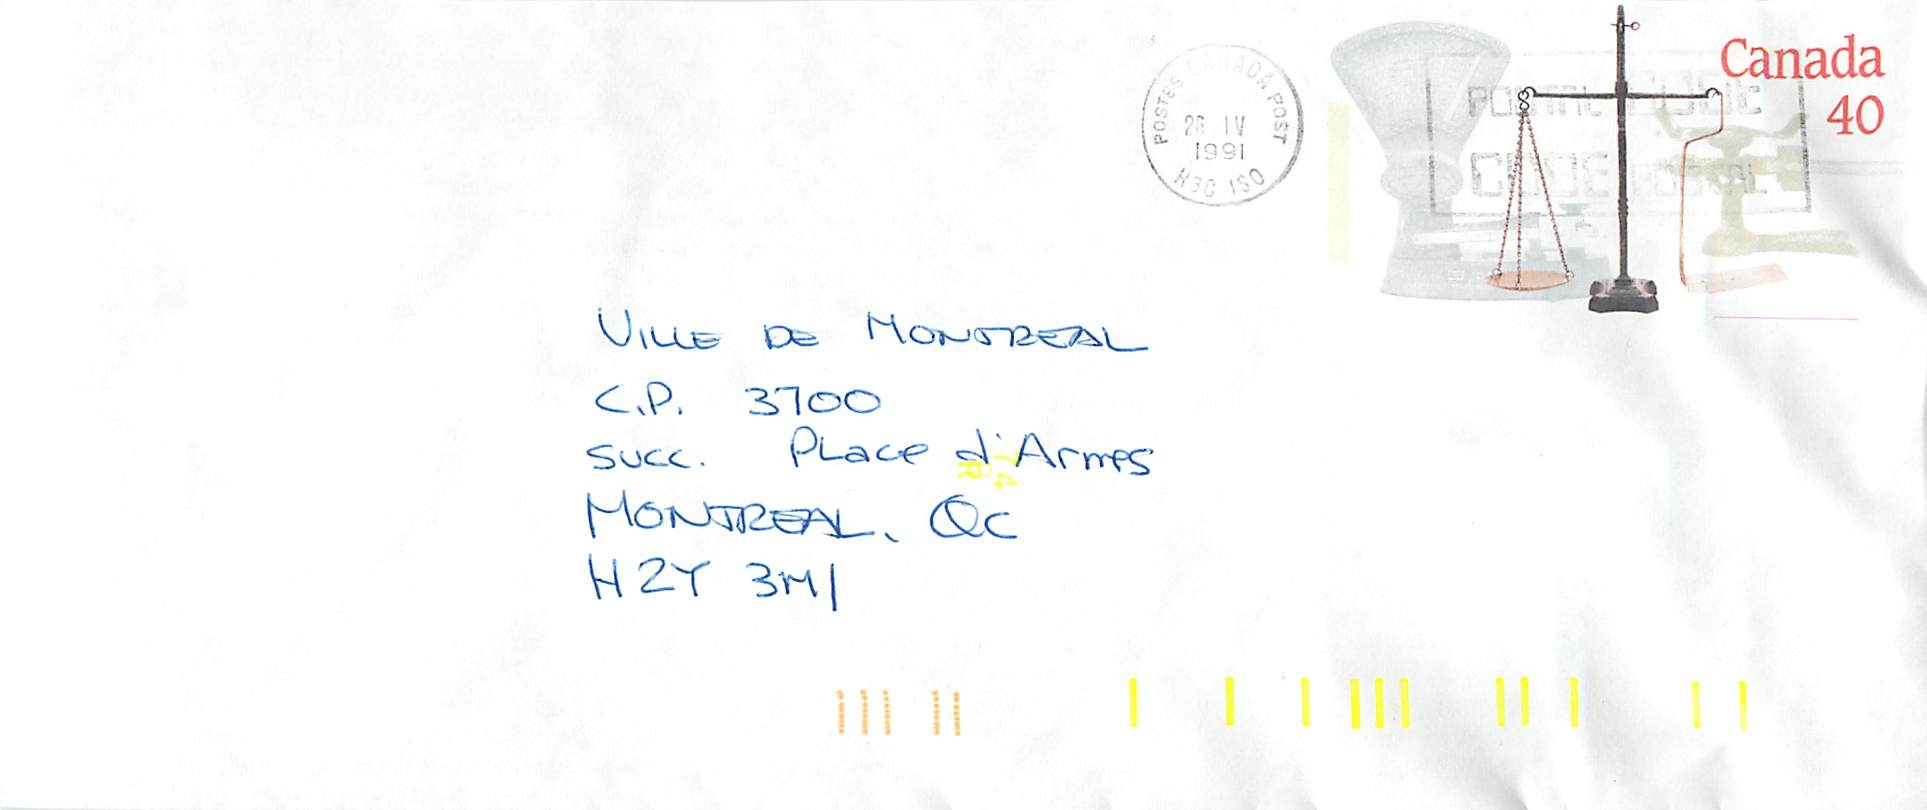 POSTES CANADA POST
26 IV
1991
H3C 1S0
POSTAL CODE
CODE POSTAL
Canada
40
VILLE DE MONTREAL
C.P. 3700
succ. Place d'Armes
MONTREAL, QC
H2Y 3M1